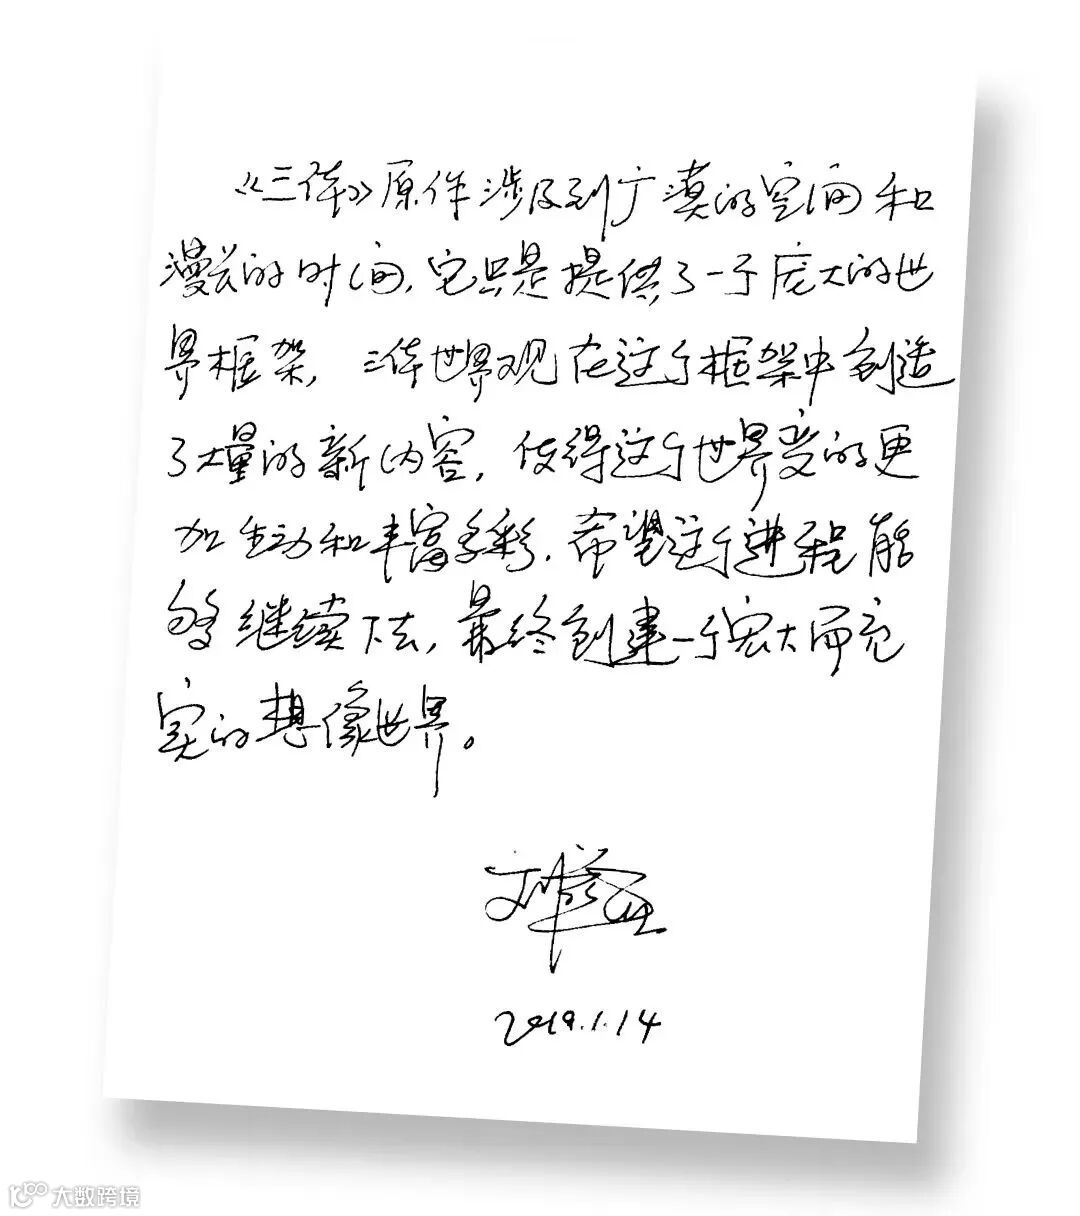 《三体》原作涉及到广漠的空间和
漫长的时间,它只是提供了一个庞大的世
界框架,三体世界观在这个框架中创造
了大量的新内容,使得这个世界变的更
加生动和丰富多彩.希望这个进程能
够继续下去,最终创建一个宏大而充
实的想像世界。
刘慈欣
2019.1.14
大数跨境